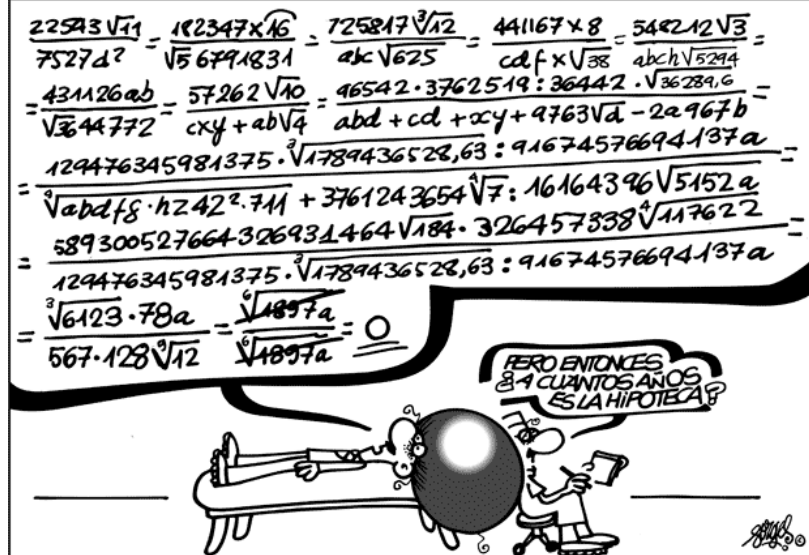 22543√11/7527d² = 182347×16/√5 6791831 = 725817 ³√12/abc√625 = 441167×8/cdf×√38 = 548212√3/abch√5294 =
= 431126ab/√3644772 = 57262√10/cxy+ab√4 = 96542·3762519:36442·√36289,6/abd+cd+xy+9763√d-2a967b =
= 129476345981375·³√1789436528,63:91674576694137a/⁴√abdfg·hz42²·711+3761243654⁴√7:16164396√5152a =
= 589300527664326931464√184·326457338⁴√117622/129476345981375·³√1789436528,63:91674576694137a =
= ³√6123·78a/567·128⁹√12 = ⁶√1897a/⁶√1897a = 0
PERO ENTONCES
¿A CUANTOS AÑOS
ES LA HIPOTECA?